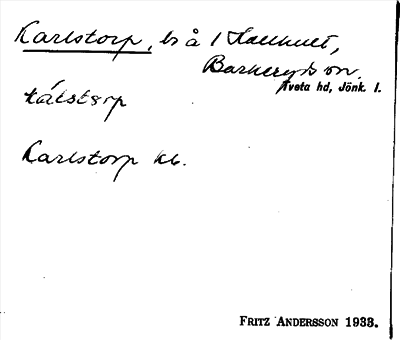 Karlstorp, ls å 1 Hallhult,
Barkeryds sn.
Tveta hd, Jönk. l.
kálstȩrp
Karlstorp kb.
FRITZ ANDERSSON 1933.